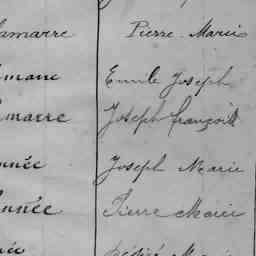 amarre Pierre Marie
Emile Joseph
marre Joseph françois
nnée Joseph Marie
nnée Pierre Marie